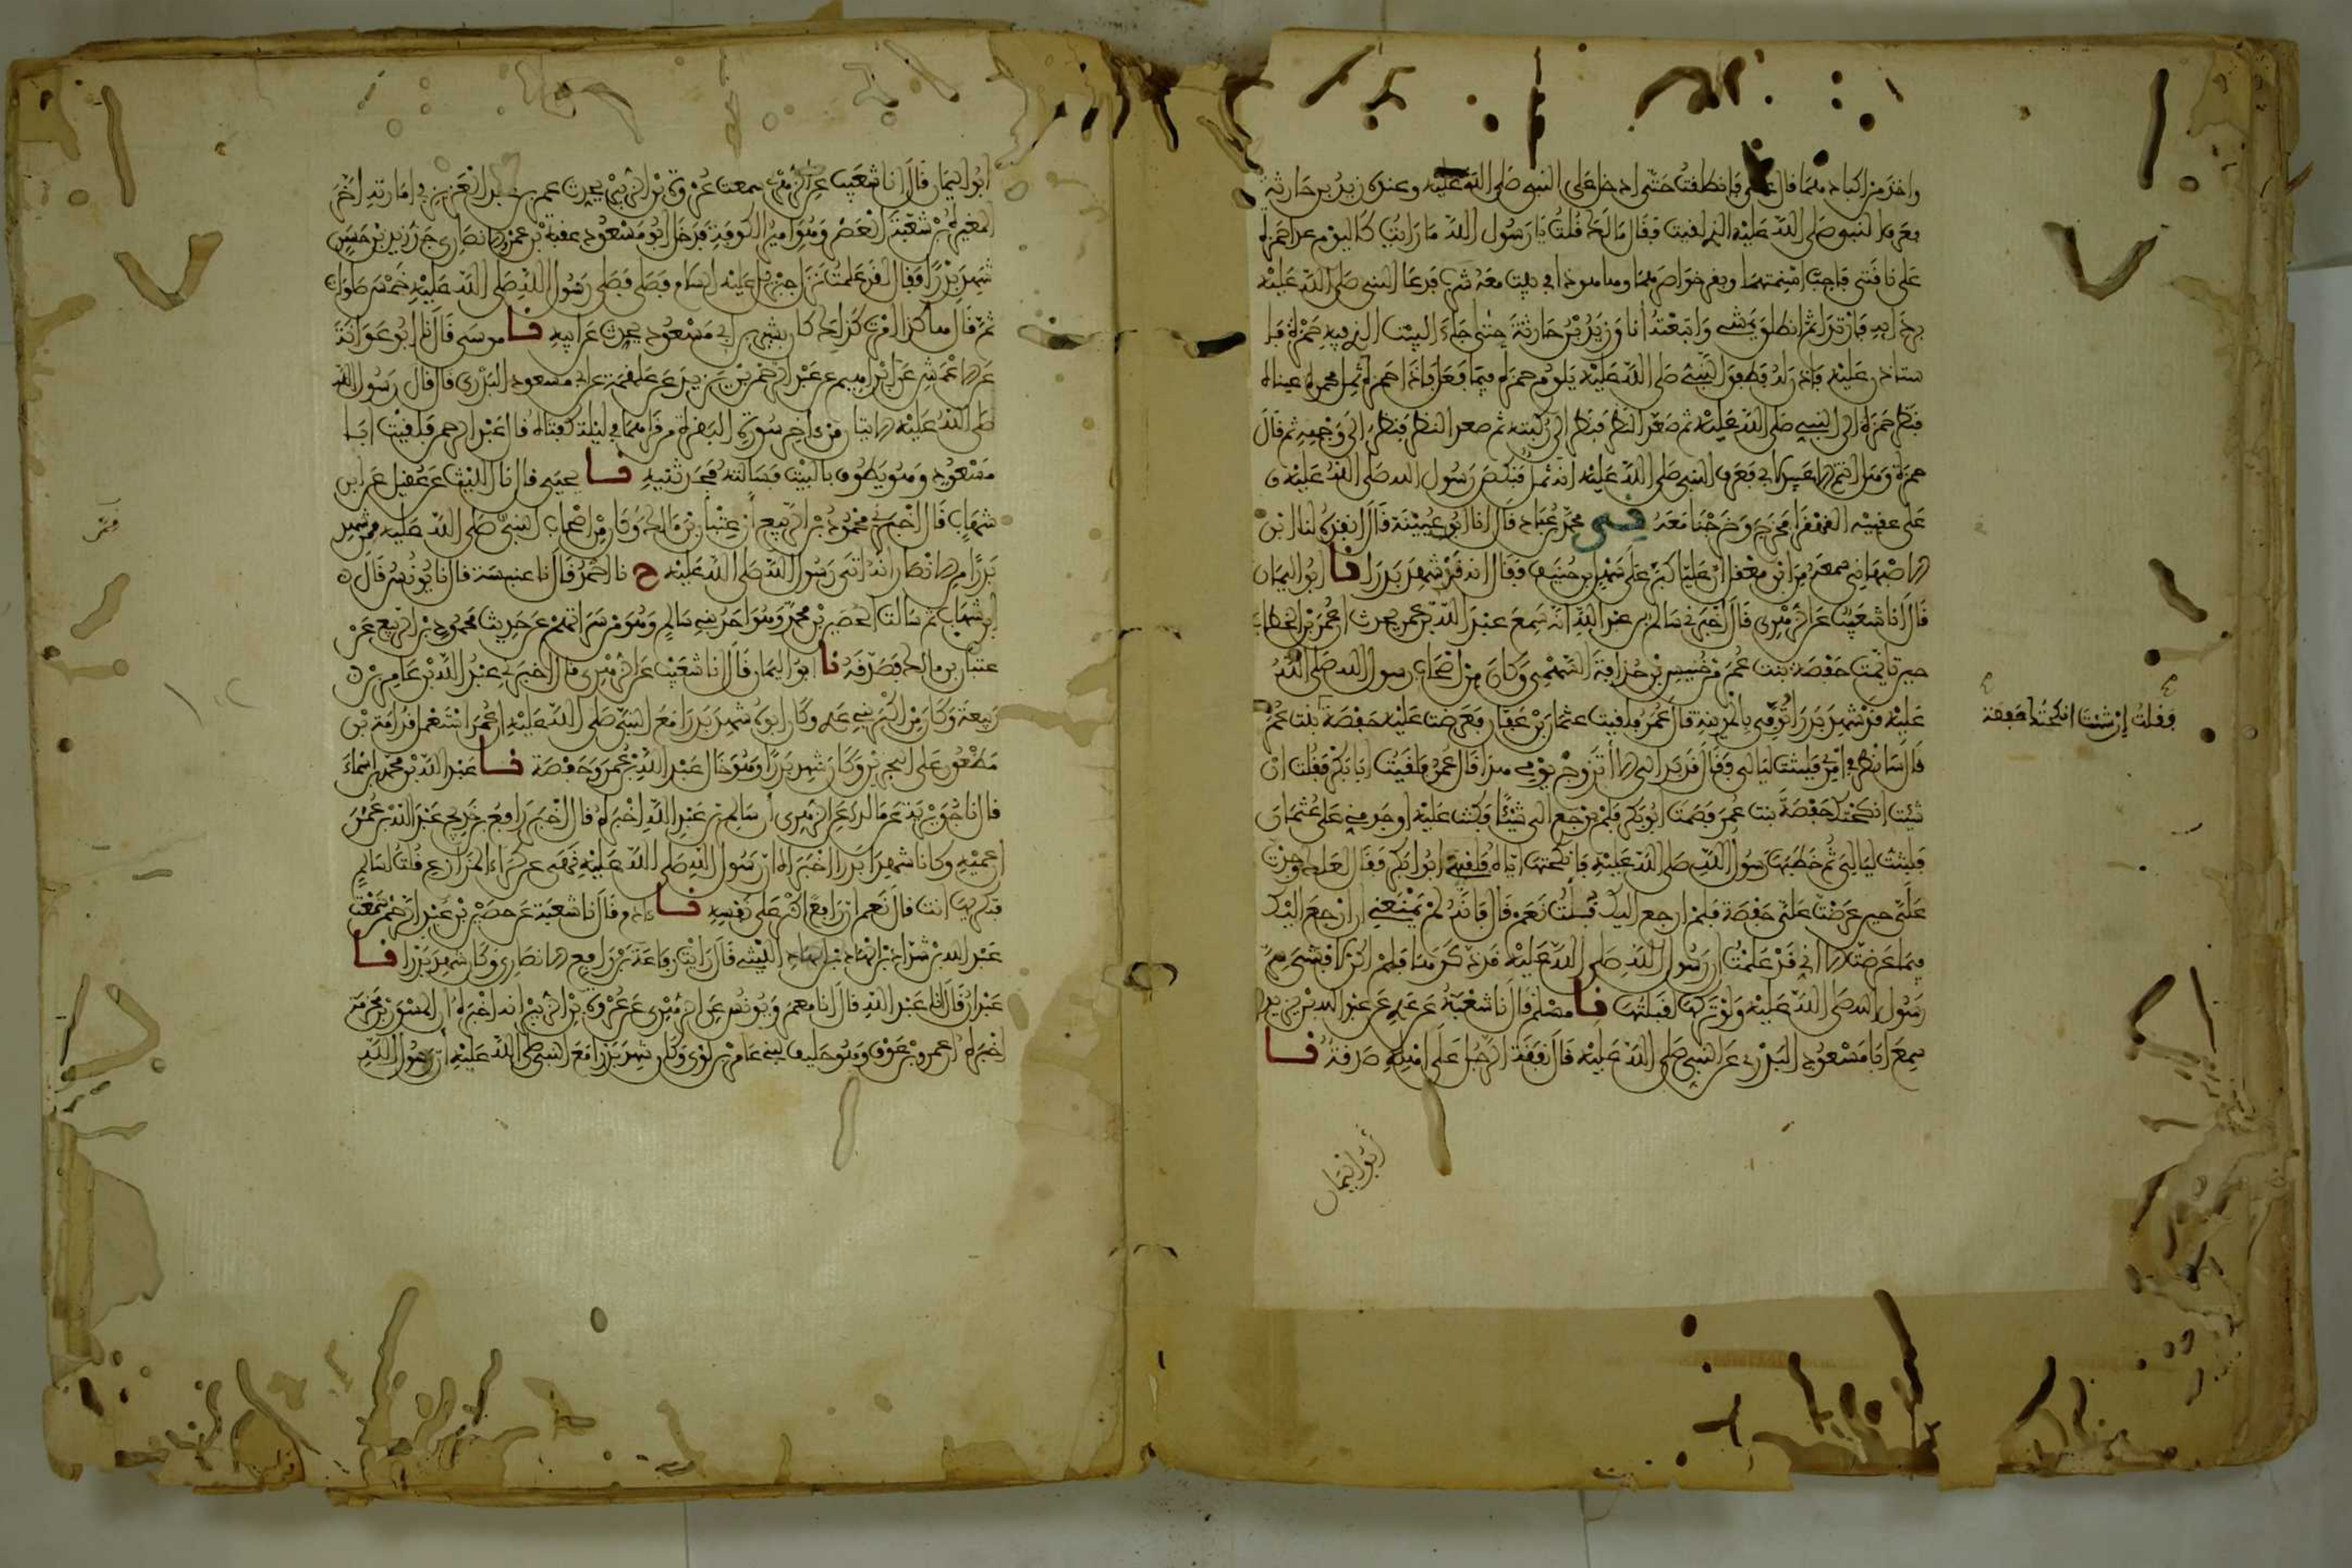 واخذ من اكبادهما قال علي فانطلقت حتى ادخل على النبي صلى الله عليه وعنده زيد بن حارثة
فعرف النبي صلى الله عليه الذي لقيت فقال ما لك قلت يا رسول الله ما رايت كاليوم عدا حمزة
على ناقتي فاجب اسنمتهما وبقر خواصرهما وها هو ذا في بيت معه شرب فدعا النبي صلى الله عليه
بردايه فارتدا ثم انطلق يمشي واتبعته انا وزيد بن حارثة حتى جاء البيت الذي فيه حمزة فا
ستاذن عليه فاذن له فطفق النبي صلى الله عليه يلوم حمزة فيما فعل فاذا حمزة ثمل محمرة عيناه
فنظر حمزة الى النبي صلى الله عليه ثم صعد النظر فنظر الى ركبته ثم صعد النظر فنظر الى وجهه ثم قال
حمزة وهل انتم الا عبيد لابي فعرف النبي صلى الله عليه انه ثمل فنكص رسول الله صلى الله عليه و
على عقبيه القهقرا فخرج وخرجنا معه ني محمد بن عباد قال انا ابن عيينة قال انفذه لنا ابن
الاصبهاني سمعه من ابن معقل ان عليا كبر على سهل بن حنيف فقال انه قد شهد بدرا نا ابو اليمان
قال انا شعيب عن الزهري قال اخبرني سالم بن عبد الله انه سمع عبد الله بن عمر يحدث ان عمر بن الخطاب
حين تايمت حفصة بنت عمر من خنيس بن حذافة السهمي وكان من اصحاب رسول الله صلى الله
عليه قد شهد بدرا توفي بالمدينة قال عمر فلقيت عثمان بن عفان فعرضت عليه حفصة بنت عمر
وقلت ان شئت انكحتك حفصة
قال سانظر في امري فلبثت ليالي فقال قد بدا لي الا اتزوج يومي هذا قال عمر فلقيت ابا بكر فقلت ان
شئت انكحتك حفصة بنت عمر فصمت ابو بكر فلم يرجع الي شيئا فكنت عليه اوجد مني على عثمان
فلبثت ليالي ثم خطبها رسول الله صلى الله عليه فانكحتها اياه فلقيني ابو بكر فقال لعلك وجدت
علي حين عرضت علي حفصة فلم ارجع اليك قلت نعم قال فانه لم يمنعني ان ارجع اليك
فيما عرضت الا اني قد علمت ان رسول الله صلى الله عليه قد ذكرها فلم اكن لافشي سر
رسول الله صلى الله عليه ولو تركها لقبلتها نا مسلم قال نا شعبة عن عدي عن عبد الله بن يزيد
سمع ابا مسعود البدري عن النبي صلى الله عليه قال نفقة الرجل على اهله صدقة نا
ابو اليمان
ابو اليمان قال انا شعيب عن الزهري سمعت عروة بن الزبير يحدث عمر بن عبد العزيز في امارته اخر
المغيرة بن شعبة العصر وهو امير الكوفة فدخل ابو مسعود عقبة بن عمرو الانصاري جد زيد بن حسن
شهد بدرا فقال لقد علمت نزل جبريل عليه السلام فصلى فصلى رسول الله صلى الله عليه خمس صلوات
ثم قال هاكذا امرت كذلك كان بشير بن ابي مسعود يحدث عن ابيه نا موسى قال نا ابو عوانة
عن الاعمش عن ابراهيم عن عبد الرحمن بن يزيد عن علقمة عن ابي مسعود البدري قال قال رسول الله
صلى الله عليه الايتان من اخر سورة البقرة من قراهما في ليلة كفتاه قال عبد الرحمن فلقيت ابا
مسعود وهو يطوف بالبيت فسالته فحدثنيه نا يحيى قال نا الليث عن عقيل عن ابن
شهاب قال اخبرني محمود بن الربيع ان عتبان بن مالك وكان من اصحاب النبي صلى الله عليه ممن شهد
بدرا من الانصار انه اتى رسول الله صلى الله عليه ح نا احمد قال نا عنبسة قال نا يونس قال
ابن شهاب ثم سالت الحصين بن محمد وهو احد بني سالم وهو من سراتهم عن حديث محمود بن الربيع عن
عتبان بن مالك فصدقه نا ابو اليمان قال انا شعيب عن الزهري قال اخبرني عبد الله بن عامر بن
ربيعة وكان من اكبر بني عدي وكان ابوه شهد بدرا مع النبي صلى الله عليه ان عمر استعمل قدامة بن
مظعون على البحرين وكان شهد بدرا وهو خال عبد الله بن عمر وحفصة نا عبد الله بن محمد بن اسماء
قال نا جويرية عن مالك عن الزهري ان سالم بن عبد الله اخبره قال اخبر رافع بن خديج عبد الله بن عمر ان
عميه وكانا شهدا بدرا اخبراه ان رسول الله صلى الله عليه نهى عن كراء المزارع قلت لسالم
فتكريها انت قال نعم ان رافعا اكثر على نفسه نا ادم قال نا شعبة عن حصين بن عبد الرحمن سمعت
عبد الله بن شداد بن الهاد الليثي قال رايت رفاعة بن رافع الانصاري وكان شهد بدرا نا
عبدان قال انا عبد الله قال انا معمر ويونس عن الزهري عن عروة بن الزبير انه اخبره ان المسور بن مخرمة
اخبره ان عمرو بن عوف وهو حليف لبني عامر بن لؤي وكان شهد بدرا مع النبي صلى الله عليه ان رسول الله